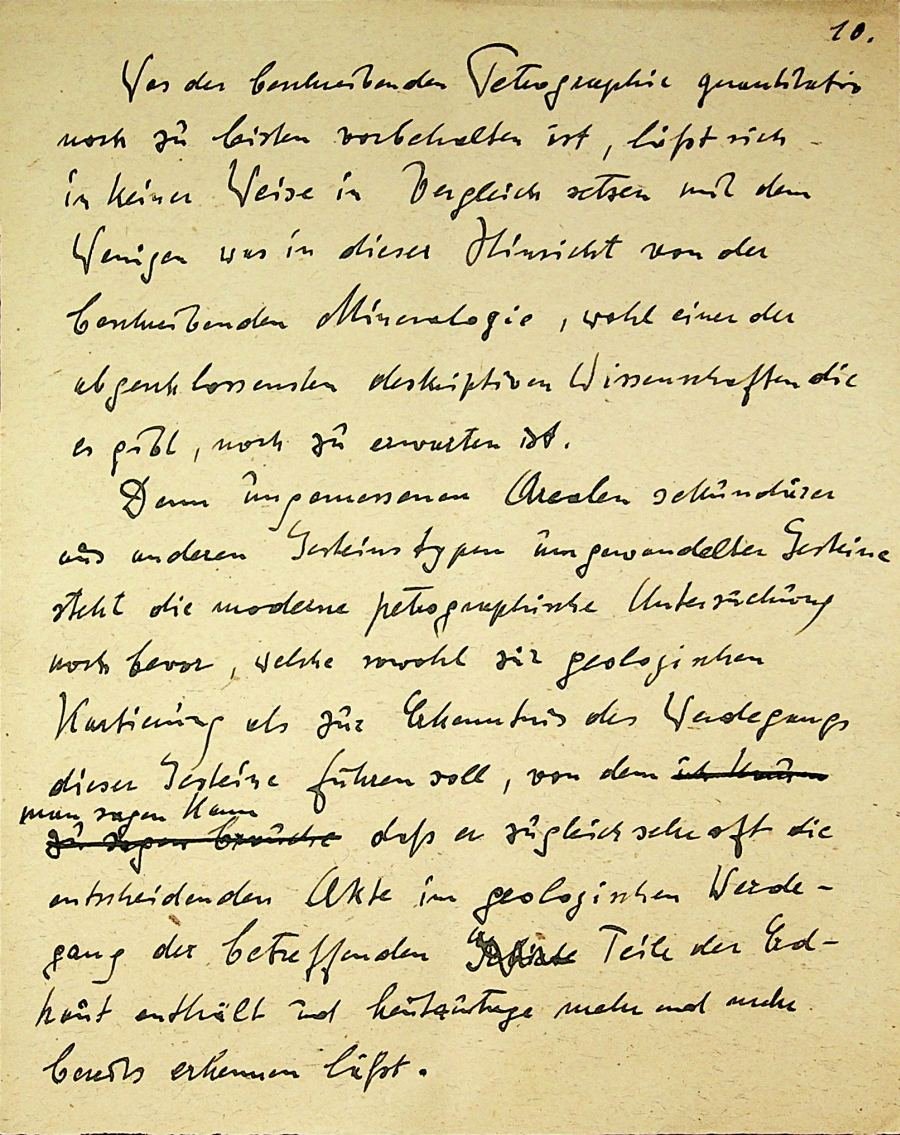 10.
Was der beschreibenden Petrographie quantitativ
noch zu leisten vorbehalten ist, läßt sich
in keiner Weise in Vergleich setzen mit dem
Wenigen was in dieser Hinsicht von der
beschreibenden Mineralogie, wohl einer der
abgeschlossensten deskriptiven Wissenschaften die
es gibt, noch zu erwarten ist.
Denn ungemessenen Arealen sekundärer
aus anderen Gesteinstypen umgewandelter Gesteine
steht die moderne petrographische Untersuchung
noch bevor, welche sowohl zur geologischen
Kartierung als zur Erkenntnis des Werdegangs
dieser Gesteine führen soll, von dem ich kaum
man sagen kann
zu sagen brauche daß er zugleich sehr oft die
entscheidenden Akte im geologischen Werde-
gang der betreffenden Teile der Erd-
haut enthält und heutzutage mehr und mehr
bereits erkennen läßt.